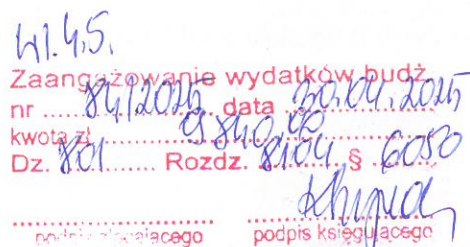 W1.4.5.
Zaangażowanie wydatków budż.
nr ...84/2025... data 30.04.2025
kwota zł ...9840,00...
Dz. 801 ...... Rozdz. 8104 § 6050
podpis zlecającego podpis księgującego